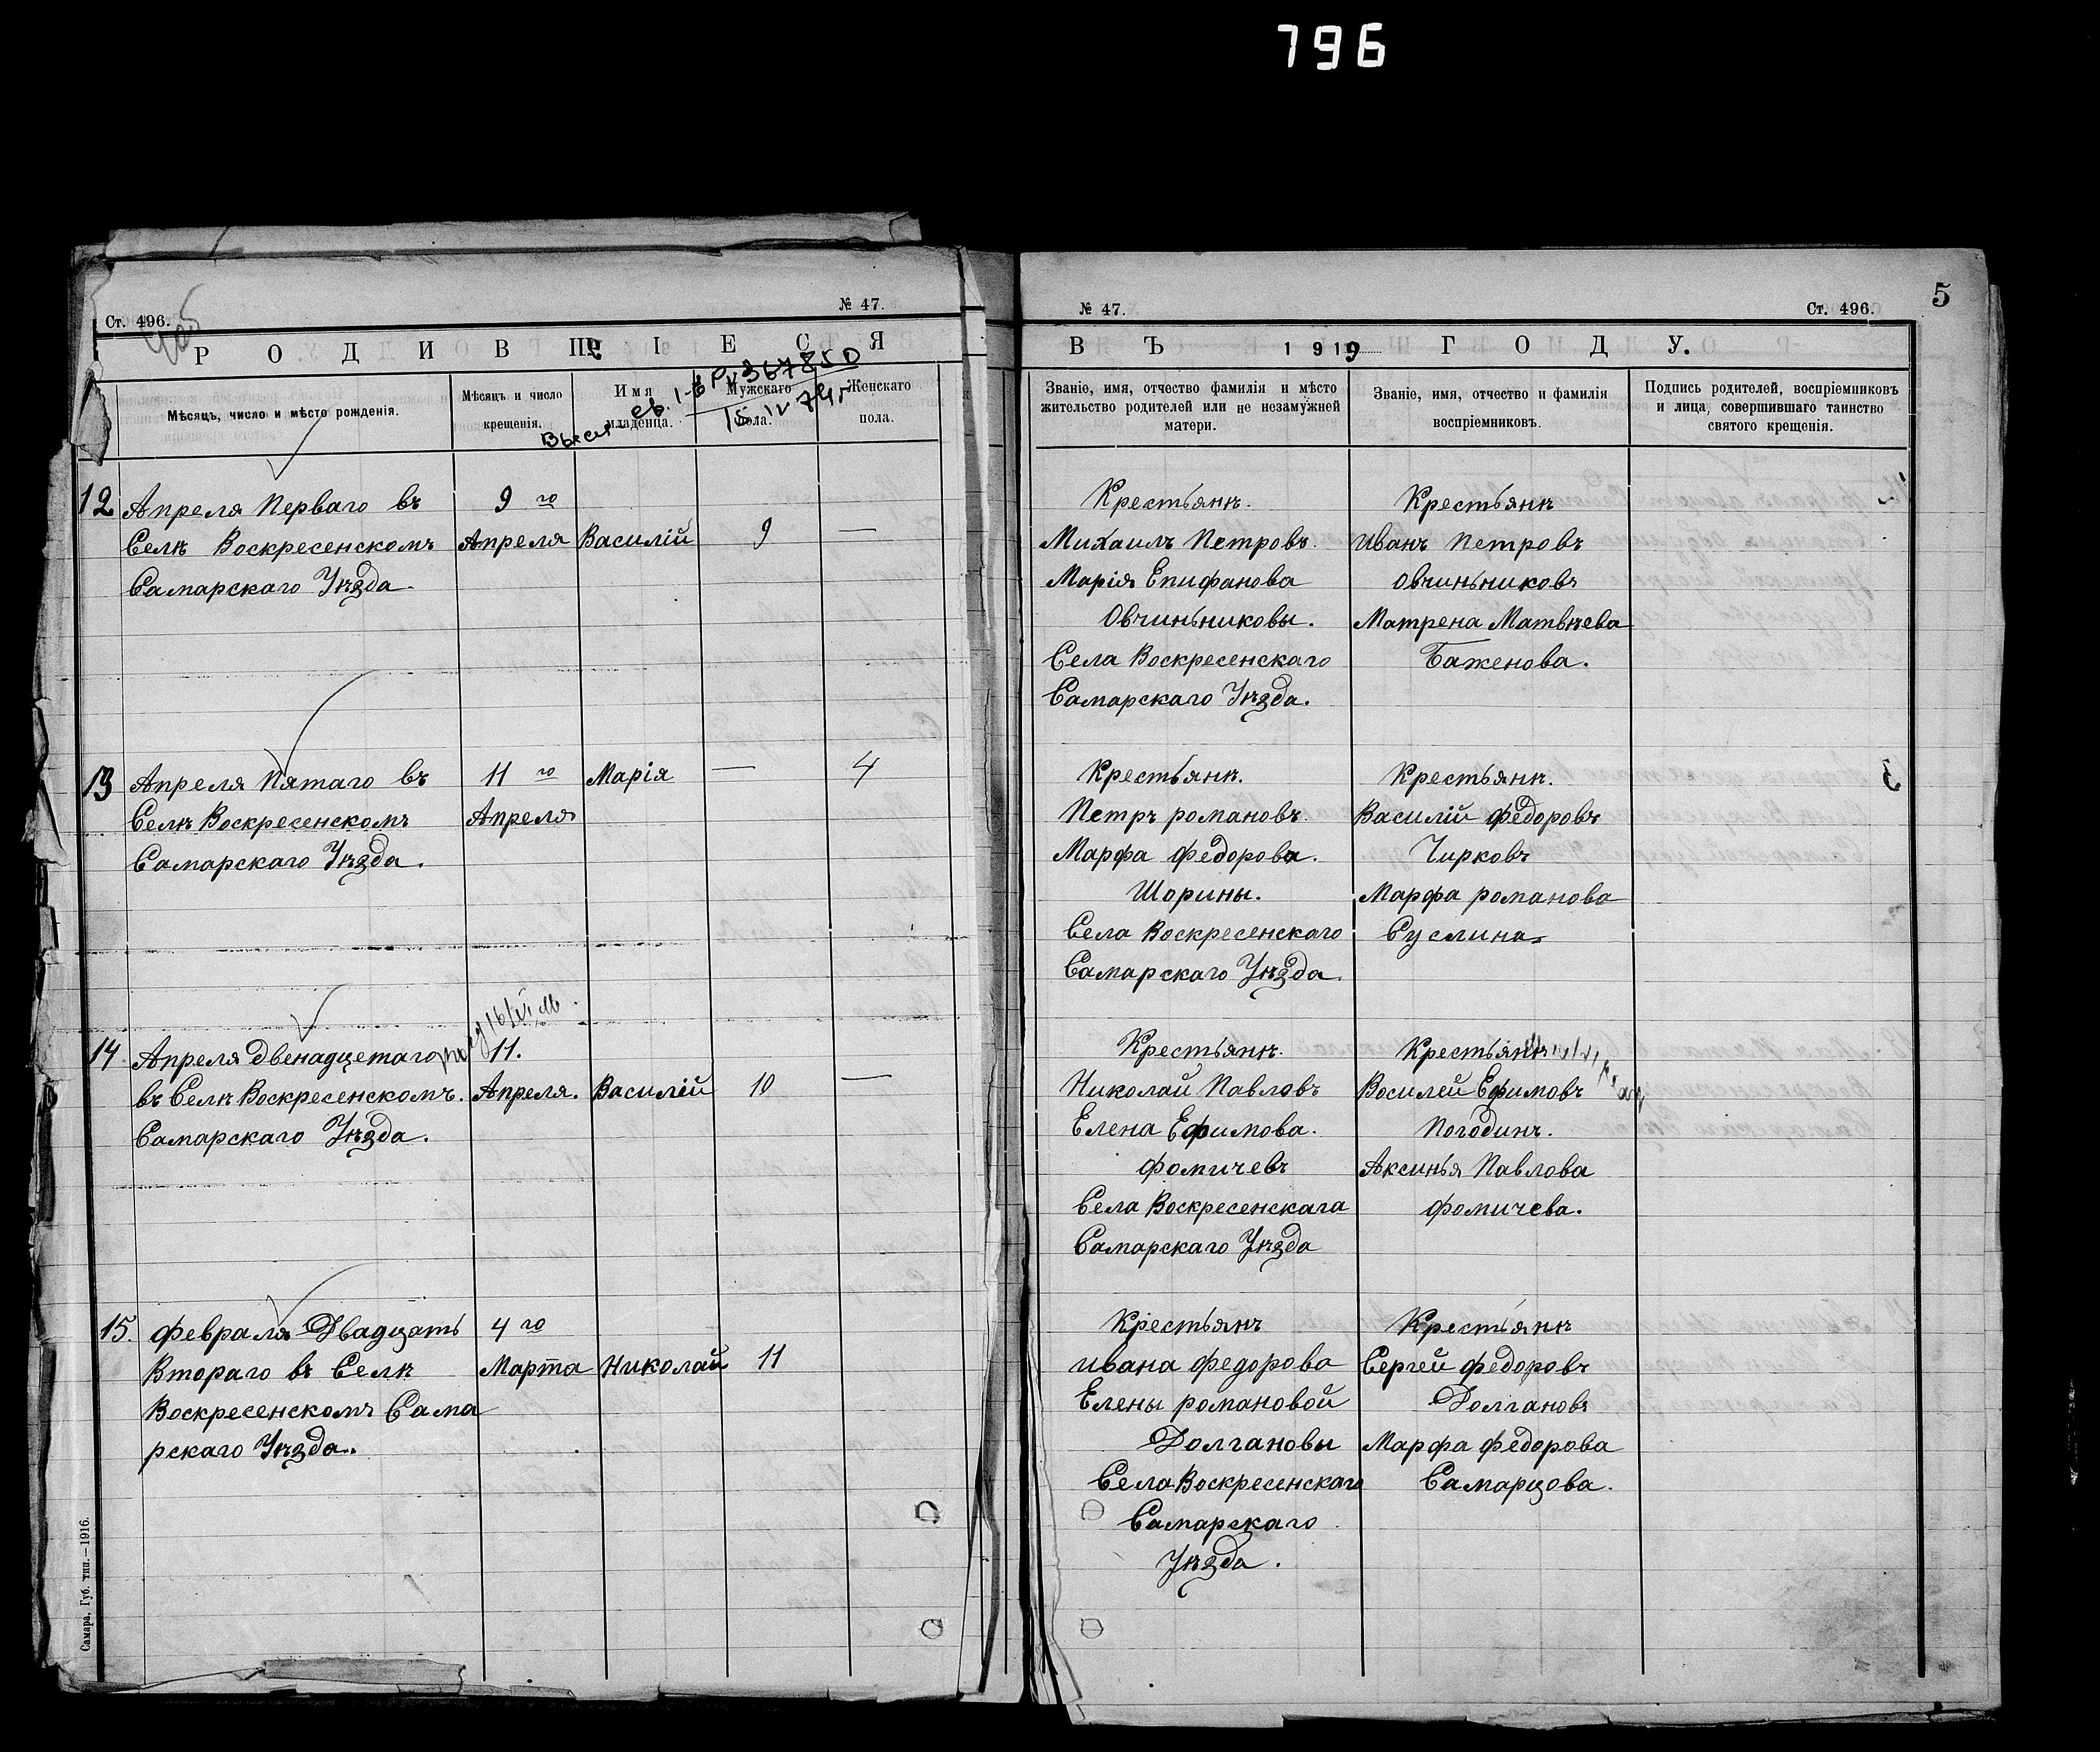 796
Ст. 496.
№ 47.
РОДИВШІЕСЯ
Мѣсяцъ, число и мѣсто рожденія.
Мѣсяцъ и число
крещенія.
Имя
младенца.
Мужскаго
пола.
Женскаго
пола.
367850
12 Апреля Перваго въ
Селѣ Воскресенскомъ
Самарскаго Уѣзда
9 го
Апреля
Василій
9
—
13 Апреля Пятаго въ
Селѣ Воскресенскомъ
Самарскаго Уѣзда.
11 го
Апреля
Марія
—
4
14. Апреля двенадцетаго
въ Селѣ Воскресенскомъ.
Самарскаго Уѣзда.
11.
Апреля.
Василій
10
—
15. Февраля Двадцать
Втораго въ Селѣ
Воскресенскомъ Сама
рскаго Уѣзда.
4 го
Марта
Николай
11
Самара, Губ. тип.—1916.
№ 47.
Ст. 496.
5
ВЪ 1919 ГОДУ.
Званіе, имя, отчество фамилія и мѣсто
жительство родителей или не незамужней
матери.
Званіе, имя, отчество и фамилія
воспріемниковъ.
Подпись родителей, воспріемниковъ
и лица, совершившаго таинство
святого крещенія.
Крестьянѣ.
Михаилъ Петровъ.
Марія Епифанова
Овчиньниковы.
Села Воскресенскаго
Самарскаго Уѣзда.
Крестьянѣ
Иванъ Петровъ
Овчиньниковъ
Матрена Матвѣева
Баженова.
Крестьянѣ.
Петръ романовъ.
Марфа Федорова.
Шорины.
Села Воскресенскаго
Самарскаго Уѣзда
Крестьянѣ.
Василій Федоровъ
Чирковъ
Марфа романова
Суслина
Крестьянѣ.
Николай Павловъ
Елена Ефимова.
Фомичевъ
Села Воскресенскага
Самарскаго Уѣзда
Крестьянѣ
Восилей Ефимовъ
Погодинъ.
Аксинья Павлова
Фомичева.
Крестьянъ
ивана Федорова
Елены романовой
Долгановы
Села Воскресенскаго
Самарскаго
Уѣзда.
Крестьянѣ
Сергей Федоровъ
Долгановъ
Марфа Федорова
Самарцова.